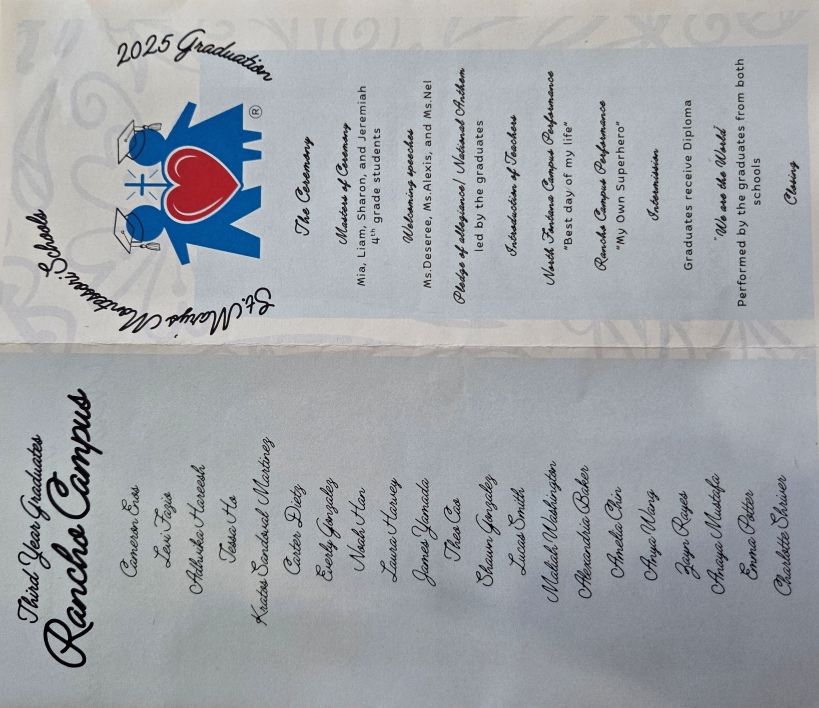 Third Year Graduates
Rancho Campus
Cameron
Levi Fazio
Hareesh
Tessa Ho
Kratos Sandoval Martinez
Carter Dietz
Everly Gonzalez
Noah Han
Laura Harvey
James Yamada
Theo Cao
Shawn Gonzalez
Lucas Smith
Maliah Washington
Alexandria Baker
Amelia Chin
Anya Wang
Zayn Reyes
Anaya Mustafa
Emma Potter
Charlotte Shriver
St. Mary's Montessori Schools
2025 Graduation
®
The Ceremony
Masters of Ceremony
Mia, Liam, Sharon, and Jeremiah
4th grade students
Welcoming speeches
Ms.Deseree, Ms.Alexis, and Ms.Nel
Pledge of allegiance/ National Anthem
led by the graduates
Introduction of Teachers
North Fontana Campus Performance
"Best day of my life"
Rancho Campus Performance
"My Own Superhero"
Intermission
Graduates receive Diploma
"We are the World"
Performed by the graduates from both
schools
Closing